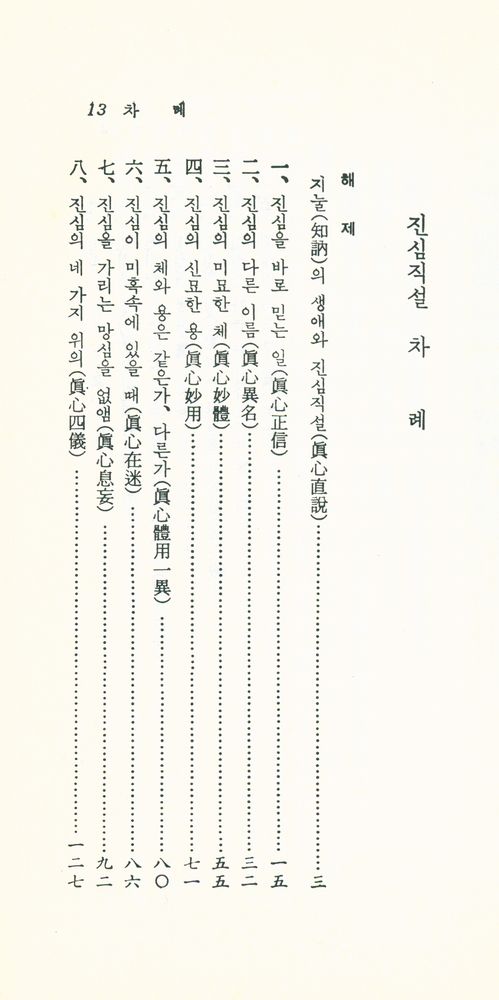 진심직설 차 례
해 제
지눌(知訥)의 생애와 진심직설(眞心直說)……三
一、진심을 바로 믿는 일(眞心正信)……一五
二、진심의 다른 이름(眞心異名)……三二
三、진심의 미묘한 체(眞心妙體)……五五
四、진심의 신묘한 용(眞心妙用)……七一
五、진심의 체와 용은 같은가、다른가(眞心體用一異)……八〇
六、진심이 미혹속에 있을 때(眞心在迷)……八六
七、진심을 가리는 망심을 없앰(眞心息妄)……九二
八、진심의 네 가지 위의(眞心四儀)……一二七
13 차 례